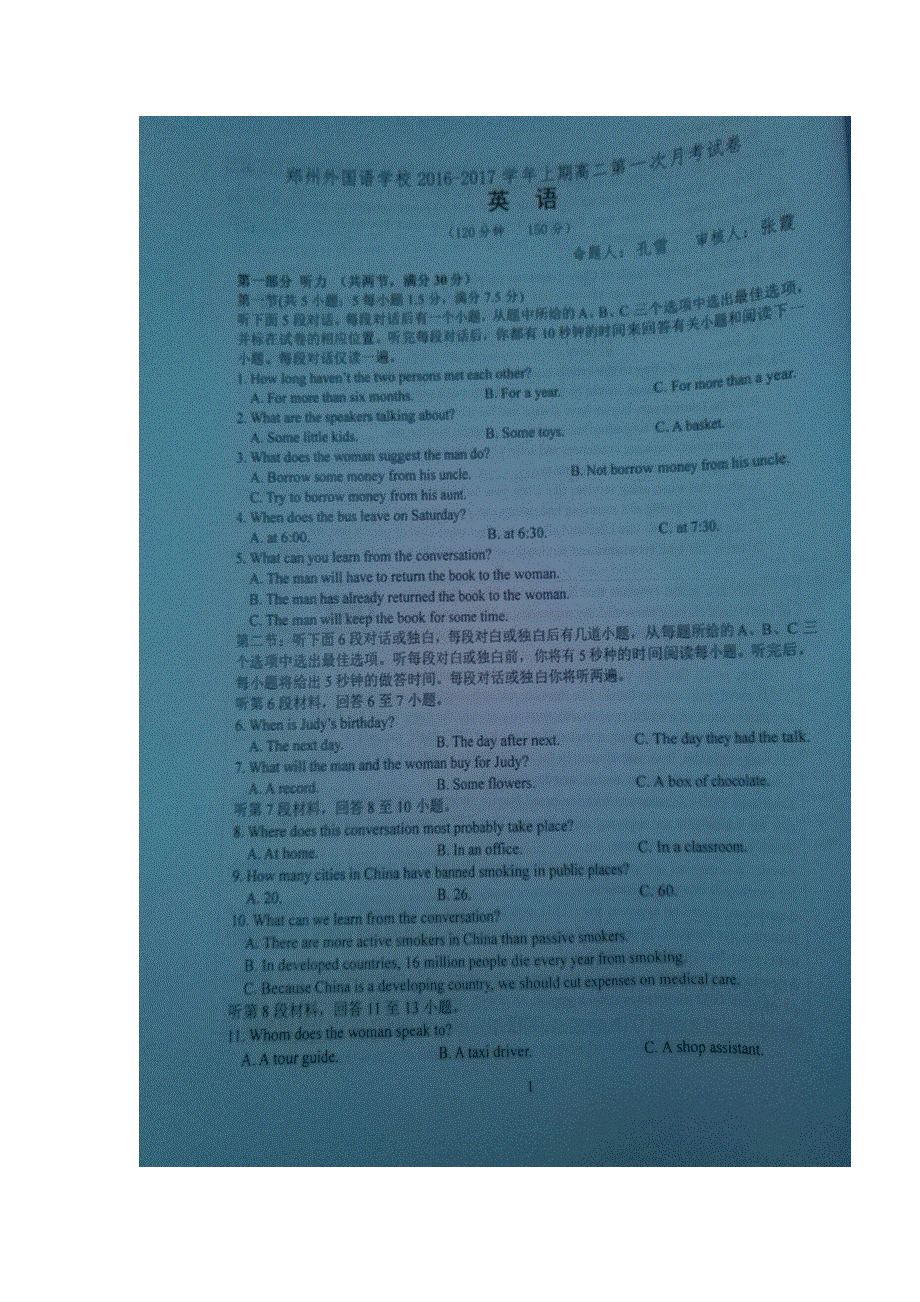 郑州外国语学校 2016-2017 学年上期高二第一次月考试卷
英 语
(120 分钟 150 分)
命题人：孔雷 审核人：张霞
第一部分 听力 (共两节，满分 30 分)
第一节(共 5 小题；5 每小题 1.5 分，满分 7.5 分)
听下面 5 段对话。每段对话后有一个小题，从题中所给的 A、B、C 三个选项中选出最佳选项，
并标在试卷的相应位置。听完每段对话后，你都有 10 秒钟的时间来回答有关小题和阅读下一
小题。每段对话仅读一遍。
1. How long haven't the two persons met each other?
A. For more than six months. B. For a year. C. For more than a year.
2. What are the speakers talking about?
A. Some little kids. B. Some toys. C. A basket.
3. What does the woman suggest the man do?
A. Borrow some money from his uncle. B. Not borrow money from his uncle.
C. Try to borrow money from his aunt.
4. When does the bus leave on Saturday?
A. at 6:00. B. at 6:30. C. at 7:30.
5. What can you learn from the conversation?
A. The man will have to return the book to the woman.
B. The man has already returned the book to the woman.
C. The man will keep the book for some time.
第二节：听下面 6 段对话或独白，每段对白或独白后有几道小题，从每题所给的 A、B、C 三
个选项中选出最佳选项。听每段对白或独白前，你将有 5 秒种的时间阅读每小题。听完后，
每小题将给出 5 秒钟的做答时间。每段对话或独白你将听两遍。
听第 6 段材料，回答 6 至 7 小题。
6. When is Judy's birthday?
A. The next day. B. The day after next. C. The day they had the talk.
7. What will the man and the woman buy for Judy?
A. A record. B. Some flowers. C. A box of chocolate.
听第 7 段材料，回答 8 至 10 小题。
8. Where does this conversation most probably take place?
A. At home. B. In an office. C. In a classroom.
9. How many cities in China have banned smoking in public places?
A. 20. B. 26. C. 60.
10. What can we learn from the conversation?
A. There are more active smokers in China than passive smokers.
B. In developed countries, 16 million people die every year from smoking.
C. Because China is a developing country, we should cut expenses on medical care.
听第 8 段材料，回答 11 至 13 小题。
11. Whom does the woman speak to?
A. A tour guide. B. A taxi driver. C. A shop assistant.
1